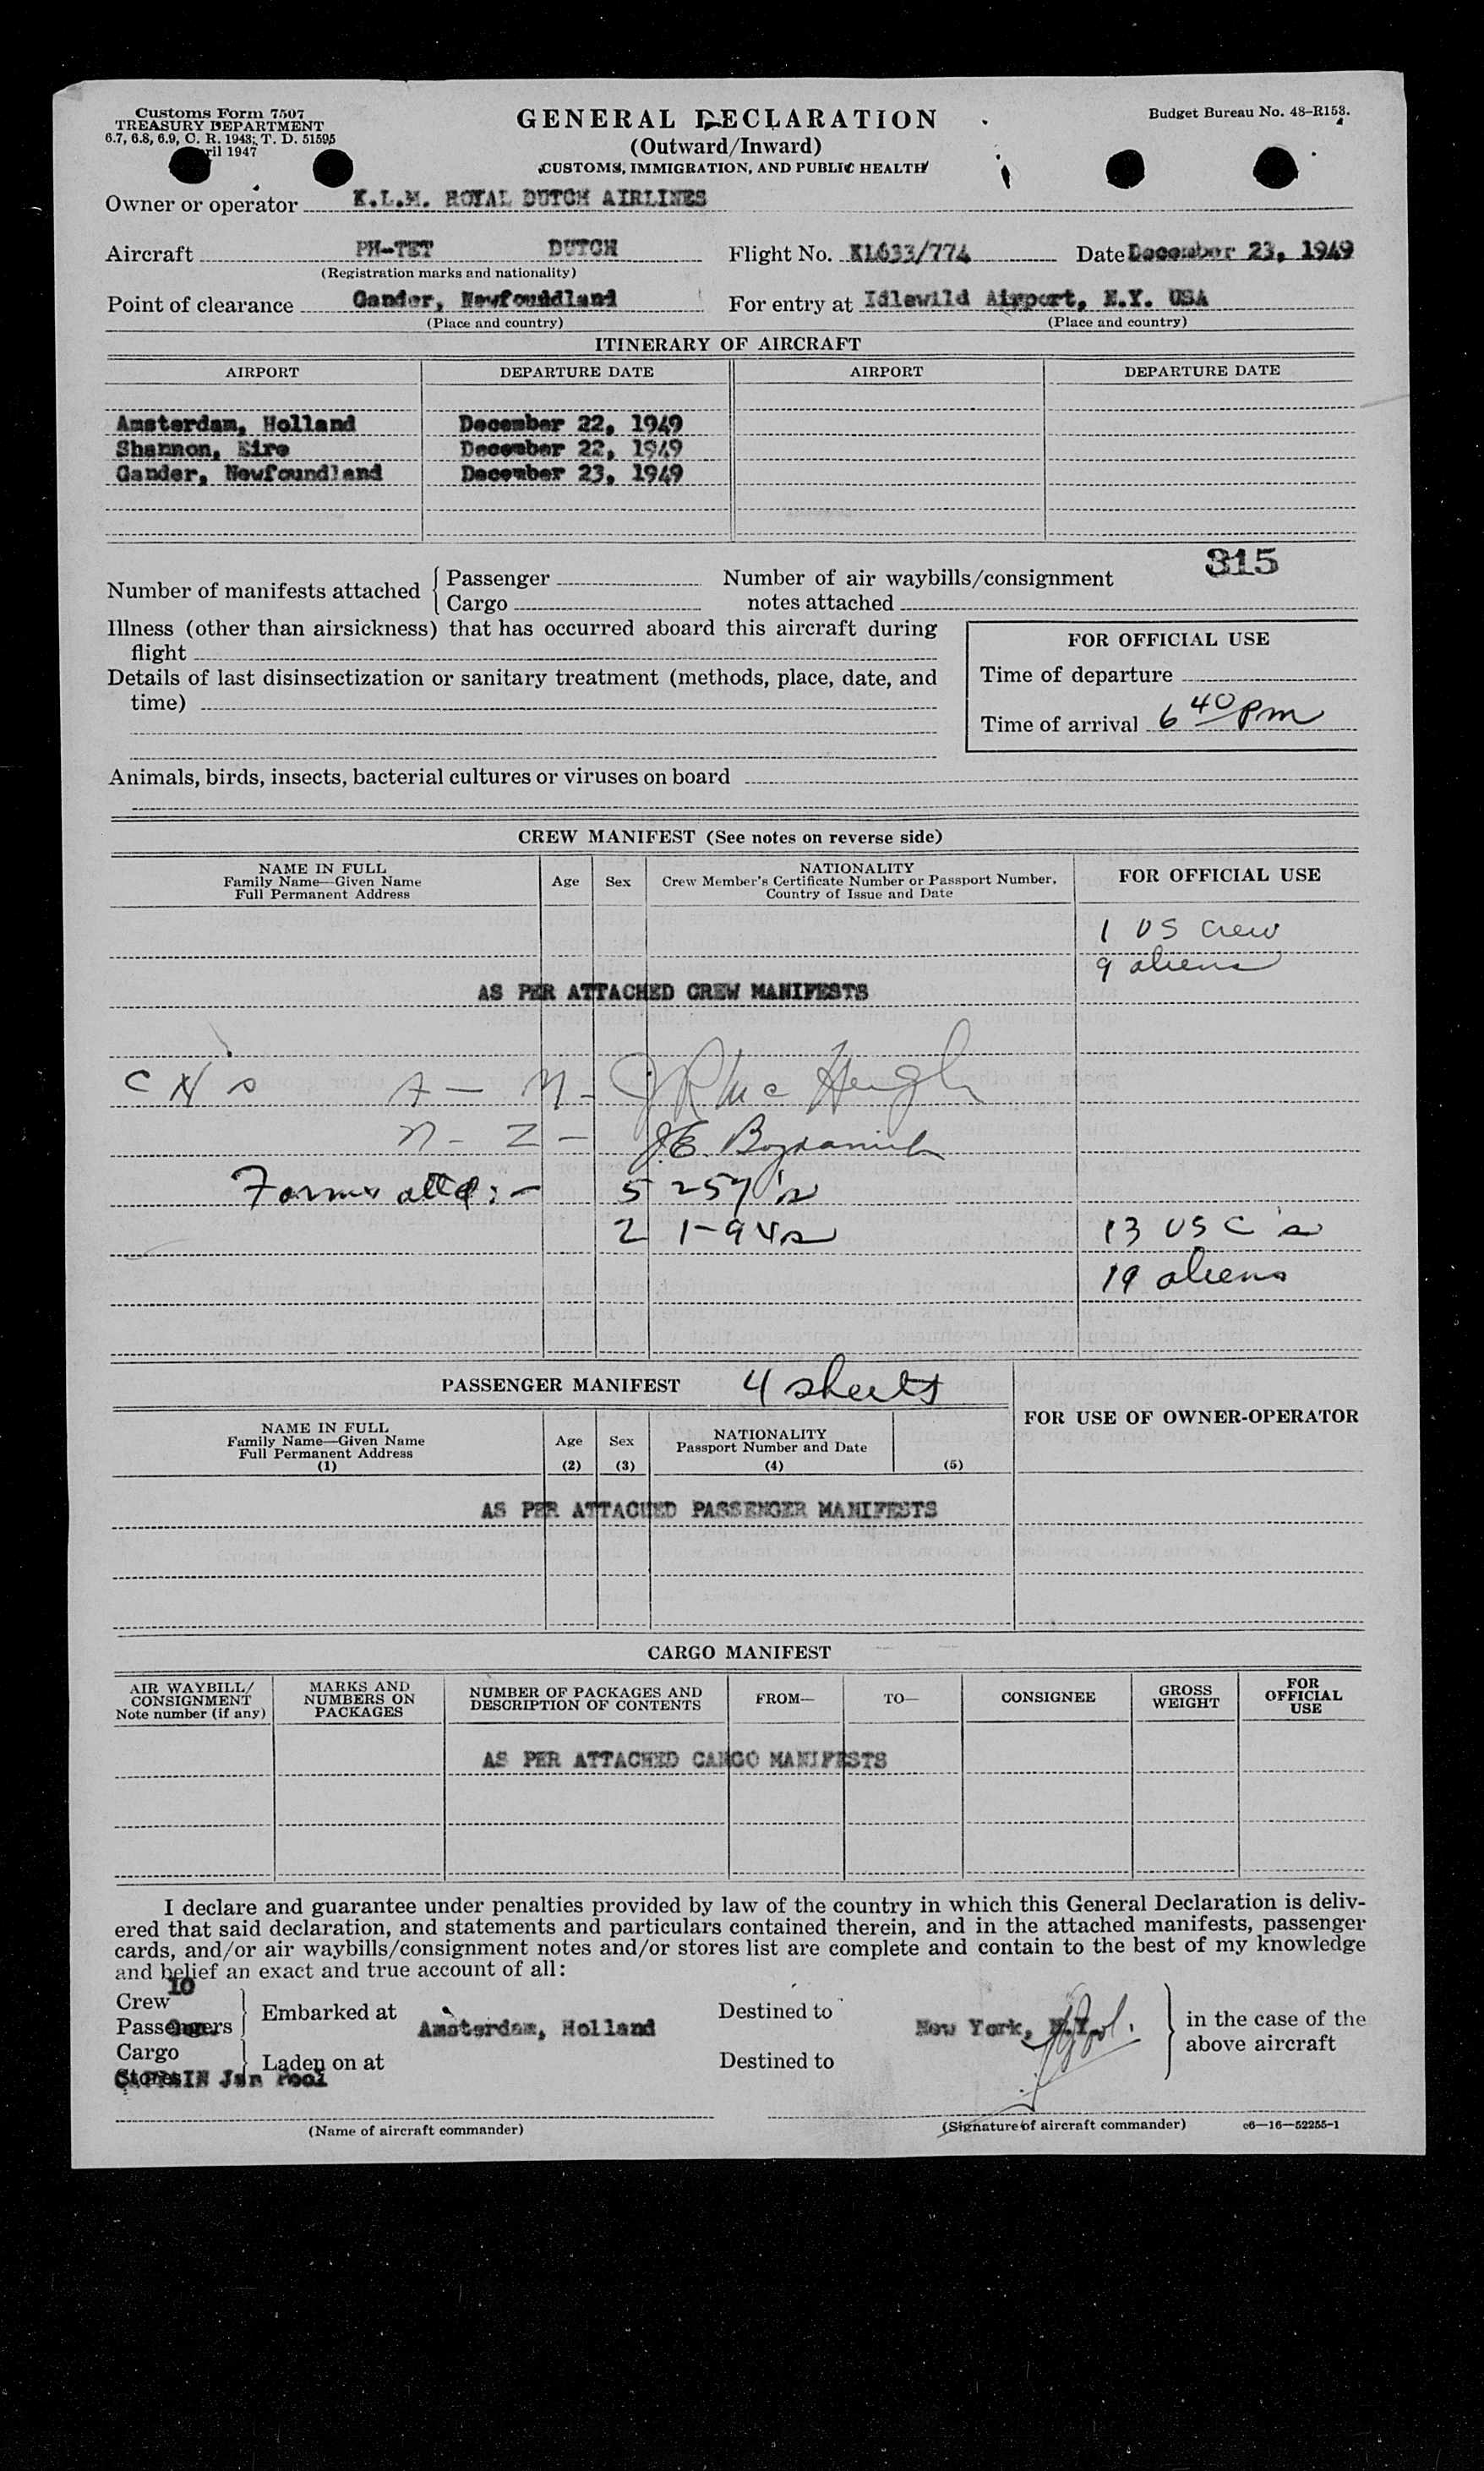 Customs Form 7507
TREASURY DEPARTMENT
6.7, 6.8, 6.9, C. R. 1943; T. D. 51595
ril 1947
GENERAL DECLARATION
(Outward/Inward)
CUSTOMS, IMMIGRATION, AND PUBLIC HEALTH
Budget Bureau No. 48-R153.
Owner or operator K.L.M. ROYAL DUTCH AIRLINES
Aircraft PH-TET DUTCH Flight No. KL633/774 Date December 23, 1949
(Registration marks and nationality)
Point of clearance Gander, Newfoundland For entry at Idlewild Airport, N.Y. USA
(Place and country) (Place and country)
ITINERARY OF AIRCRAFT
AIRPORT DEPARTURE DATE AIRPORT DEPARTURE DATE
Amsterdam, Holland December 22, 1949
Shannon, Eire December 22, 1949
Gander, Newfoundland December 23, 1949
315
Number of manifests attached { Passenger
Cargo
Number of air waybills/consignment
notes attached
Illness (other than airsickness) that has occurred aboard this aircraft during
flight
Details of last disinsectization or sanitary treatment (methods, place, date, and
time)
FOR OFFICIAL USE
Time of departure
Time of arrival 6 40 pm
Animals, birds, insects, bacterial cultures or viruses on board
CREW MANIFEST (See notes on reverse side)
NAME IN FULL
Family Name—Given Name
Full Permanent Address
Age
Sex
NATIONALITY
Crew Member's Certificate Number or Passport Number,
Country of Issue and Date
FOR OFFICIAL USE
1 US Crew
9 aliens
AS PER ATTACHED CREW MANIFESTS
A - M - J R Mc Hugh
N - Z - J.E.
Forms attd: - 5 257's
2 I-94s
13 USC's
19 aliens
PASSENGER MANIFEST 4 sheets
FOR USE OF OWNER-OPERATOR
NAME IN FULL
Family Name—Given Name
Full Permanent Address
(1)
Age
(2)
Sex
(3)
NATIONALITY
Passport Number and Date
(4)
(5)
AS PER ATTACHED PASSENGER MANIFESTS
CARGO MANIFEST
AIR WAYBILL/
CONSIGNMENT
Note number (if any)
MARKS AND
NUMBERS ON
PACKAGES
NUMBER OF PACKAGES AND
DESCRIPTION OF CONTENTS
FROM—
TO—
CONSIGNEE
GROSS
WEIGHT
FOR
OFFICIAL
USE
AS PER ATTACHED CARGO MANIFESTS
I declare and guarantee under penalties provided by law of the country in which this General Declaration is deliv-
ered that said declaration, and statements and particulars contained therein, and in the attached manifests, passenger
cards, and/or air waybills/consignment notes and/or stores list are complete and contain to the best of my knowledge
and belief an exact and true account of all:
10
Crew
Passengers
Embarked at Amsterdam, Holland
Destined to New York, N.Y.
in the case of the
above aircraft
Cargo
Stores
Laden on at
Destined to
CAPTAIN Jan Pool
(Name of aircraft commander)
(Signature of aircraft commander)
c6—16—52255-1